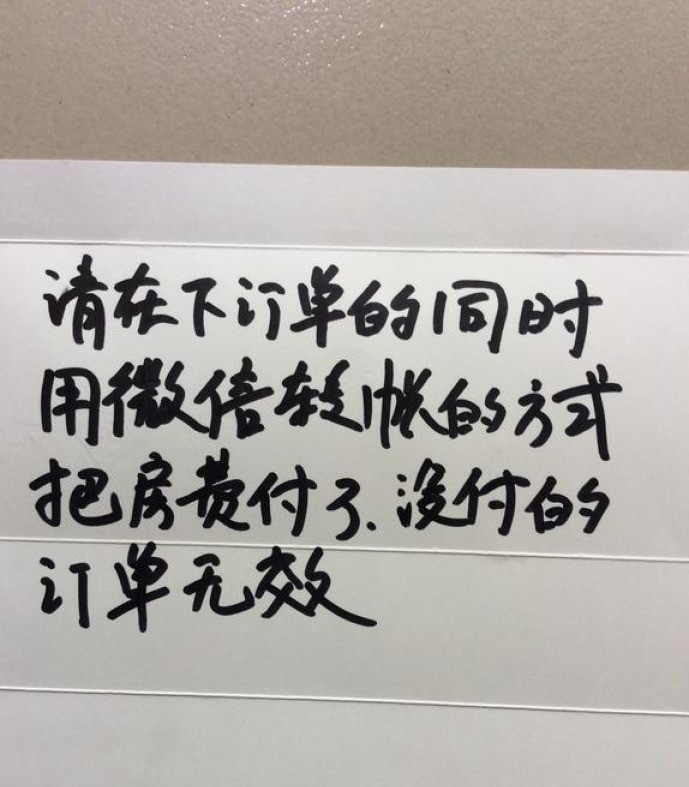 请在下订单的同时
用微信转帐的方式
把房费付了.没付的
订单无效